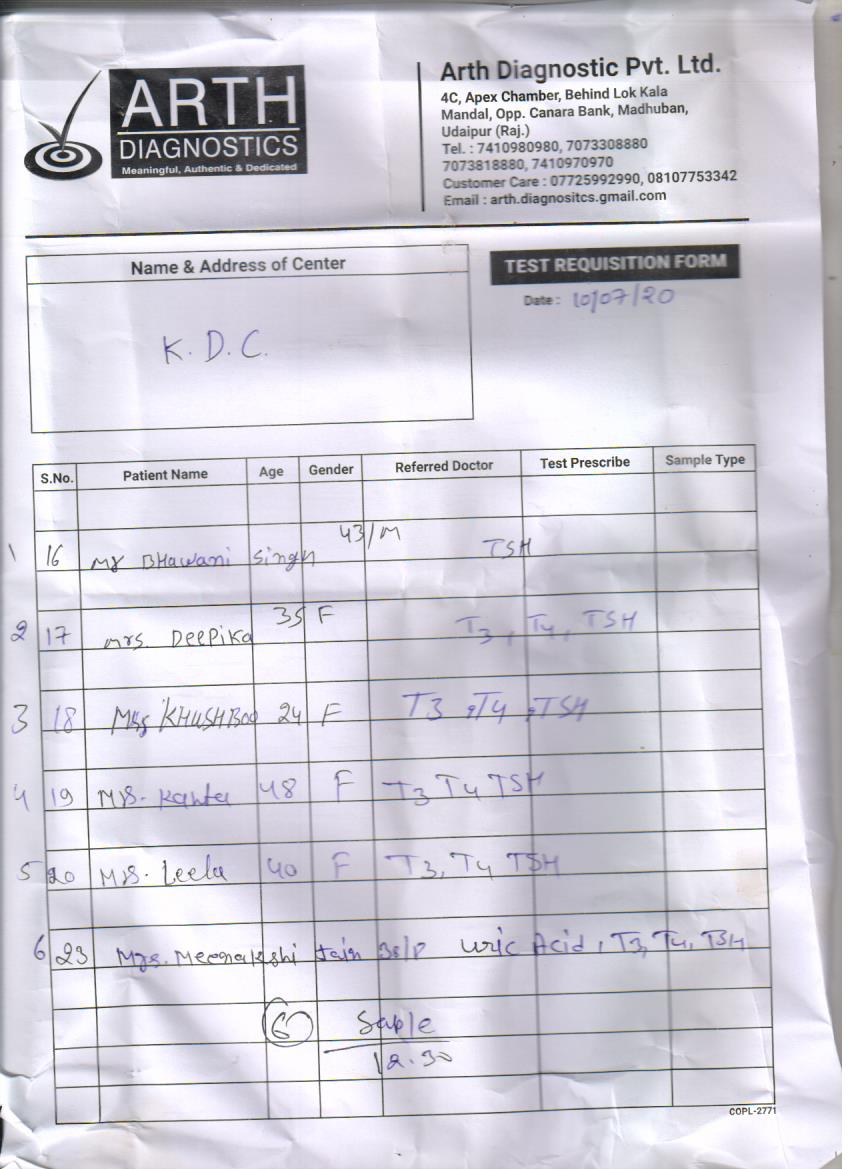 ARTH
DIAGNOSTICS
Meaningful, Authentic & Dedicated
Arth Diagnostic Pvt. Ltd.
4C, Apex Chamber, Behind Lok Kala
Mandal, Opp. Canara Bank, Madhuban,
Udaipur (Raj.)
Tel. : 7410980980, 7073308880
7073818880, 7410970970
Customer Care : 07725992990, 08107753342
Email : arth.diagnositcs.gmail.com
Name & Address of Center
TEST REQUISITION FORM
Date : 10/07/20
K. D. C.
S.No. Patient Name Age Gender Referred Doctor Test Prescribe Sample Type
1 16 Mr Bhawani Singh 43/M TSH
2 17 Mrs. Deepika 35 F T3, T4, TSH
3 18 Mrs KHUSHBOO 24 F T3, T4, TSH
4 19 Mrs. Kanta 48 F T3 T4 TSH
5 20 Mrs. Leela 40 F T3, T4 TSH
6 23 Mrs. Meenakshi Jain Uric Acid, T3, T4, TSH
6 Saple
12.30
COPL-2771